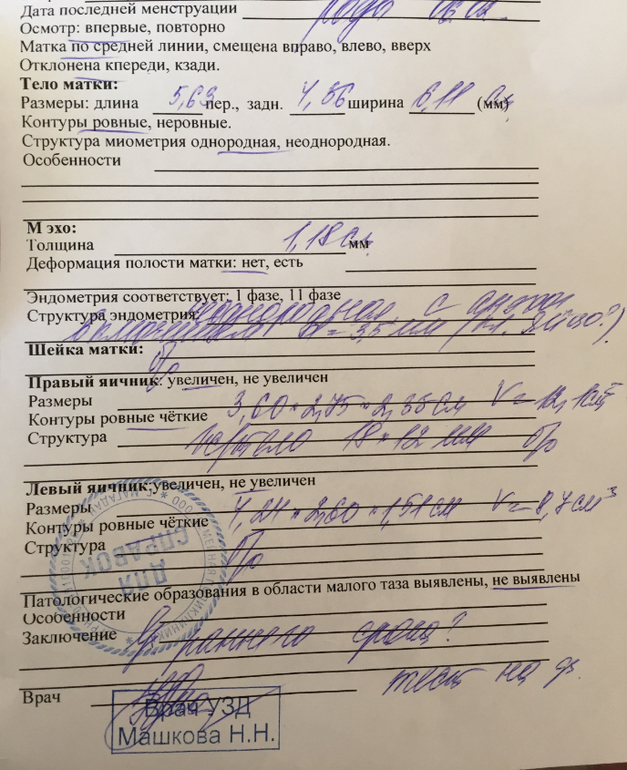 Дата последней менструации роды 06.02.
Осмотр: впервые, повторно
Матка по средней линии, смещена вправо, влево, вверх
Отклонена кпереди, кзади.
Тело матки:
Размеры: длина 5,63 пер., задн. 4,56 ширина 6,11 (мм) см
Контуры ровные, неровные.
Структура миометрия однородная, неоднородная.
Особенности
М эхо:
Толщина 1,18 см мм
Деформация полости матки: нет, есть
Эндометрия соответствует: 1 фазе, 11 фазе
Структура эндометрия: с
включением 3,5 мм (пл. яйцо?)
Шейка матки:
Правый яичник: увеличен, не увеличен
Размеры
Контуры ровные чёткие 3,60 × 2,75 × 2,35 см V = 12,1 см³
Структура желтое 18 × 12 мм
Левый яичник: увеличен, не увеличен
Размеры 4,24 × 2,60 × 1,51 см V = 8,7 см³
Контуры ровные чёткие
Структура
Патологические образования в области малого таза выявлены, не выявлены
Особенности
Заключение раннего срока?
тест на
Врач
Врач УЗД
Машкова Н.Н.
ДЛЯ
СПРАВОК